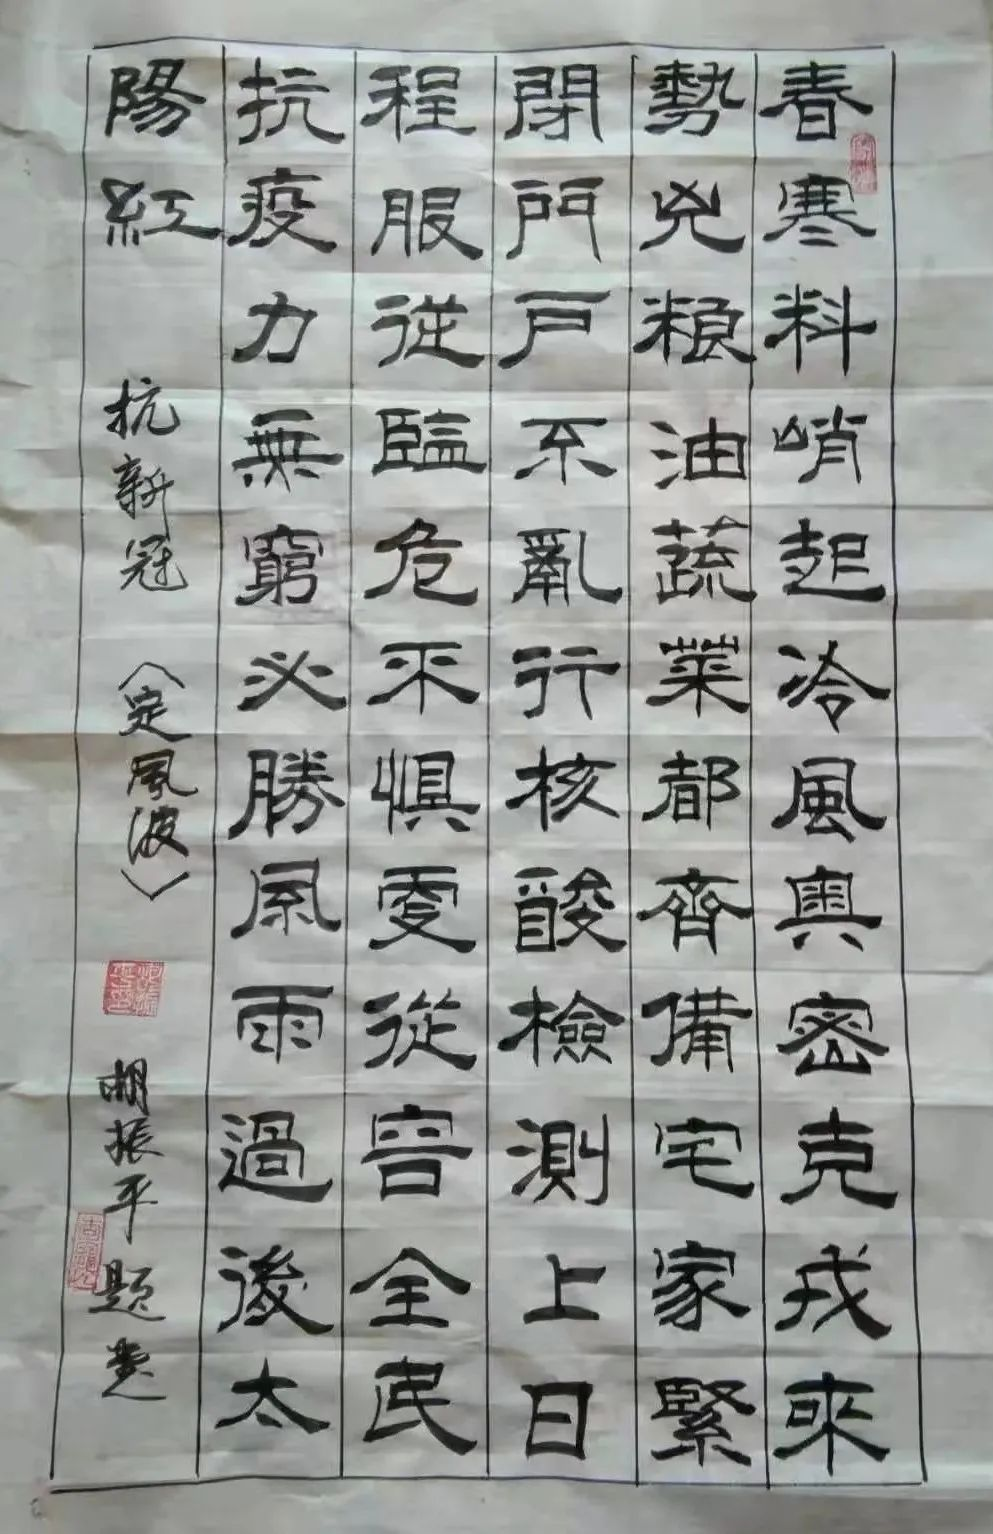 春寒料峭起冷風奥密克戎來
勢兇粮油蔬菜都齊備宅家緊
閉門戸不亂行核酸檢測上日
程服從臨危不惧變從容全民
抗疫力無窮必勝風雨過後太
陽紅
抗新冠《定風波》
胡振平题